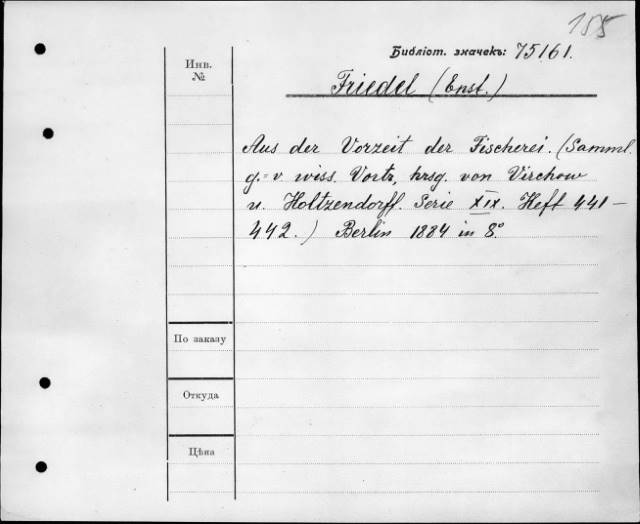 155
Библіот. значекъ: 75161.
Инв.
№
Friedel (Ernst.)
Aus der Vorzeit der Fischerei. (Samml.
g.=v. wiss. Vortr., hrsg. von Virchow
u. Holtzendorff. Serie XIX. Heft 441–
442.) Berlin 1884 in 8°.
По заказу
Откуда
Цѣна